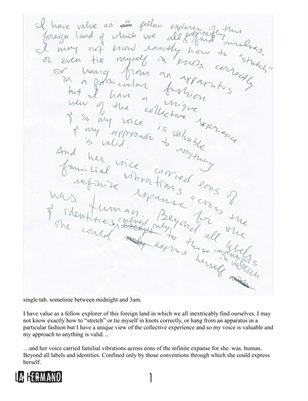 I have value as a fellow explorer of this
foreign land of which we all inextricably
find ourselves.
I may not know exactly how to "stretch"
or even tie myself in knots correctly
or hang from an apparatus
in a particular fashion
but I have a unique
view of the collective experience
& so my voice is valuable
& my approach to anything
is valid.
And her voice carried eons of
familial vibrations across the
infinite expanse for she
was human. Beyond all labels
& identities confined only
to those in which
she could express herself
single tab. sometime between midnight and 3am.
I have value as a fellow explorer of this foreign land in which we all inextricably find ourselves. I may
not know exactly how to “stretch” or tie myself in knots correctly, or hang from an apparatus in a
particular fashion but I have a unique view of the collective experience and so my voice is valuable and
my approach to anything is valid…
…and her voice carried familial vibrations across eons of the infinite expanse for she. was. human.
Beyond all labels and identities. Confined only by those conventions through which she could express
herself.
LA HERMANO
1